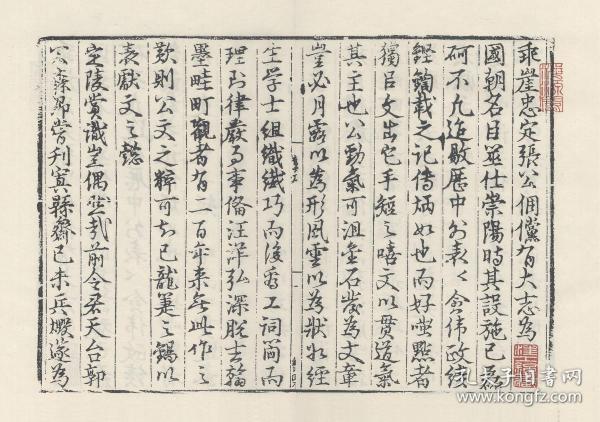 乖崖忠定張公倜儻有大志為
國朝名臣筮仕崇陽時其設施已磊
砢不凡迨敭歷中外表〻偉政績
鏗鍧載之記傳炳如也而好嗤點者
獨呂文出它手短之嘻文以貫道氣
其主也公勁氣可沮金石發為文章
豈必月露以為形風雲以為狀如經
生學士組織纖巧而後為工詞簡而
理到律嚴而事備汪洋弘深脫去翰
墨畦町觀者有二百年來無此作之
歎則公文之粹可知已龍之錫以
表獻文之懿
定陵賞識豈偶然哉前令君天台郭
公森卿嘗刊寘縣齋己未兵燬遂為
孔夫子旧书网
book.kongfz.com